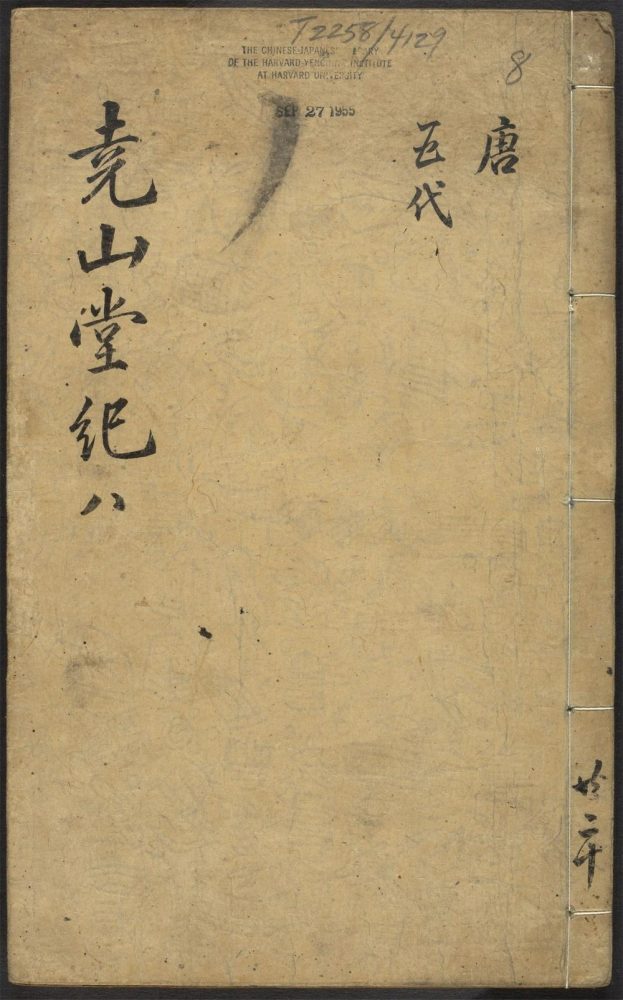 T2258/4129
THE CHINESE-JAPANESE LIBRARY
OF THE HARVARD-YENCHING INSTITUTE
AT HARVARD UNIVERSITY
SEP 27 1955
8
唐
五代
堯山堂紀八